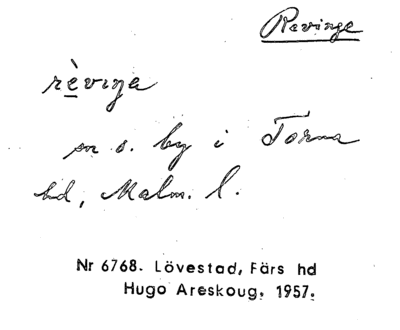 Revinge
rèviŋa
sn o. by i Torna
hd, Malm. l.
Nr 6768. Lövestad, Färs hd
Hugo Areskoug, 1957.